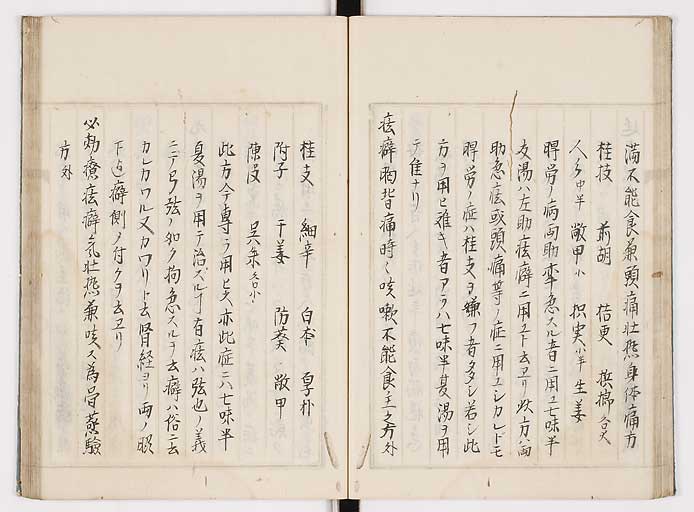 満不能食兼頭痛壮熱身体痛方
桂枝 前胡 桔更 檳榔各大
人参中半 敝甲小 枳実小半 生姜
得労ノ病両助牽急スル者ニ用ユ七味半
夏湯ハ左助痃癖ニ用ユト云ヱリ此方ハ両
助急痃或頭痛等ノ症ニ用ユシカレドモ
得労ノ症ハ桂支ヲ嫌フ者多シ若シ此
方ヲ用ヒ難キ者アラハ七味半夏湯ヲ用
テ佳ナリ
痃癖胸背痛時々咳嗽不能食主之方外
桂支 細辛 白朮 厚朴
附子 干姜 防葵 敝甲
陳皮 呉茱各小
此方今専ラ用ヒス亦此症ニハ七味半
夏湯ヲ用テ治ズルヿ有痃ハ弦也ノ義
ニテ弓弦ノ如ク拘急スルヲ云癖ハ俗ニ云
カレカワル又カワリト云腎経ヨリ両ノ
下ヱ癖側ノ付クヲ云ヱリ
必効療痃癖気壮熱兼咳久為骨蒸驗
方外